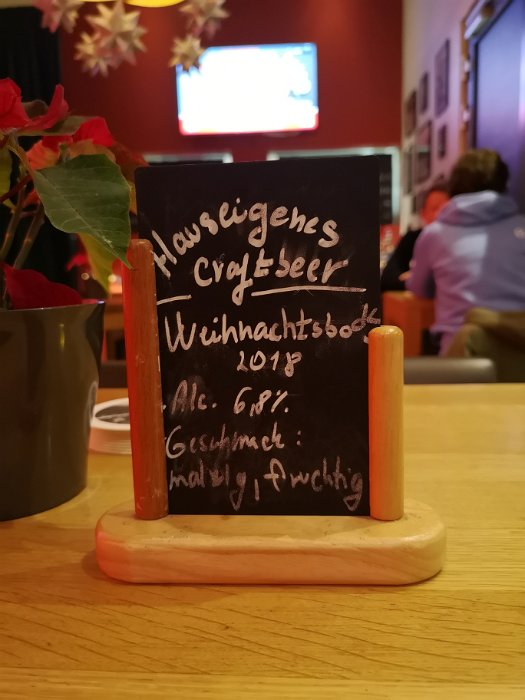 Hauseigenes
Craftbeer
Weihnachtsbock
2018
Alc. 6,8%
Geschmack:
malzig, fruchtig